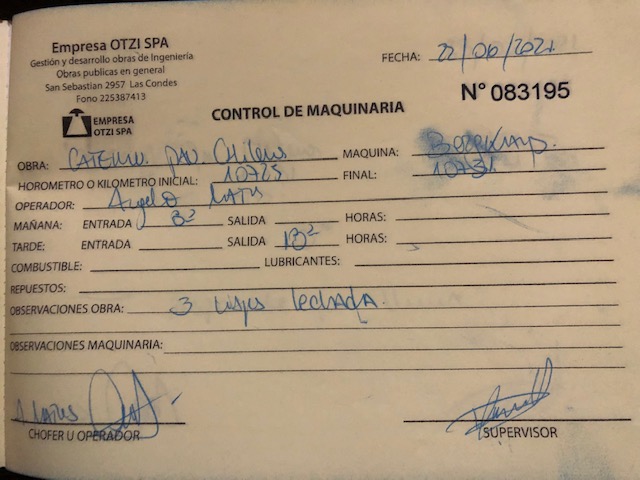 Empresa OTZI SPA
Gestión y desarrollo obras de Ingeniería
Obras publicas en general
San Sebastian 2957 Las Condes
Fono 225387413
FECHA: 22/06/2021
EMPRESA
OTZI SPA
CONTROL DE MAQUINARIA
N° 083195
OBRA: Chilenis MAQUINA:
HOROMETRO O KILOMETRO INICIAL: 10725 FINAL: 10731
OPERADOR: Angelo Latus
MAÑANA: ENTRADA 8º SALIDA HORAS:
TARDE: ENTRADA SALIDA 18º HORAS:
COMBUSTIBLE: LUBRICANTES:
REPUESTOS:
OBSERVACIONES OBRA: 3 lechada.
OBSERVACIONES MAQUINARIA:
A Latus
CHOFER U OPERADOR
SUPERVISOR